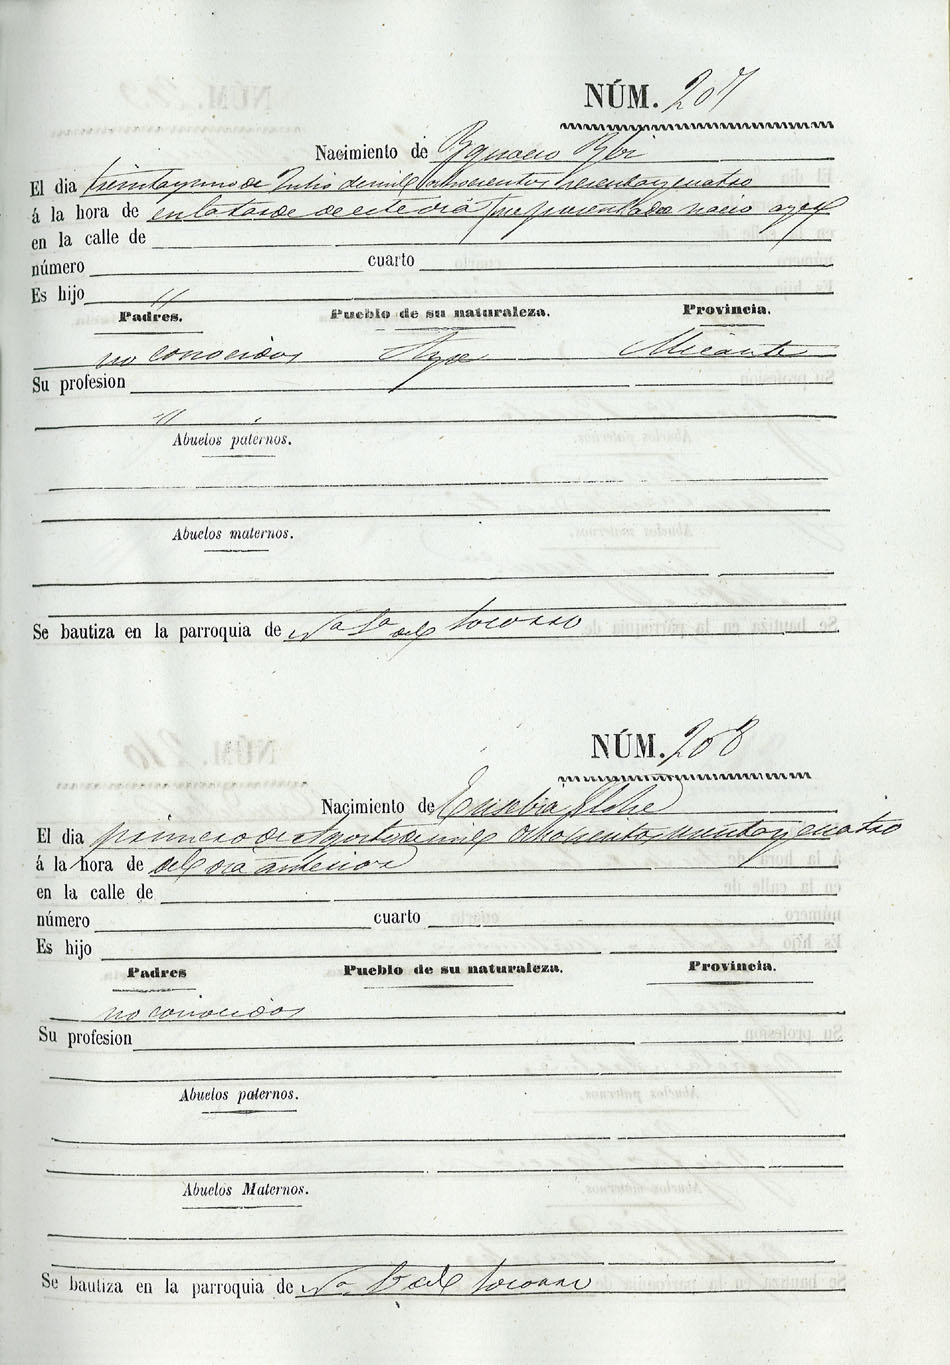 NÚM. 207
Nacimiento de Ygnacio
El dia treintayuno de Julio de mil ochocientos sesentaycuatro
á la hora de en la tarde de este dia fue presentado nacio ayer
en la calle de
número cuarto
Es hijo "
Padres. Pueblo de su naturaleza. Provincia.
no conocidos Alicante
Su profesion
"
Abuelos paternos.
Abuelos maternos.
Se bautiza en la parroquia de Nª Sª del Socorro
NÚM. 208
Nacimiento de Eusebia Elche
El dia primero de Agosto de mil ochocientos sesentaycuatro
á la hora de del dia anterior
en la calle de
número cuarto
Es hijo
Padres Pueblo de su naturaleza. Provincia.
no conocidos
Su profesion
Abuelos paternos.
Abuelos Maternos.
Se bautiza en la parroquia de Nª Sª del Socorro